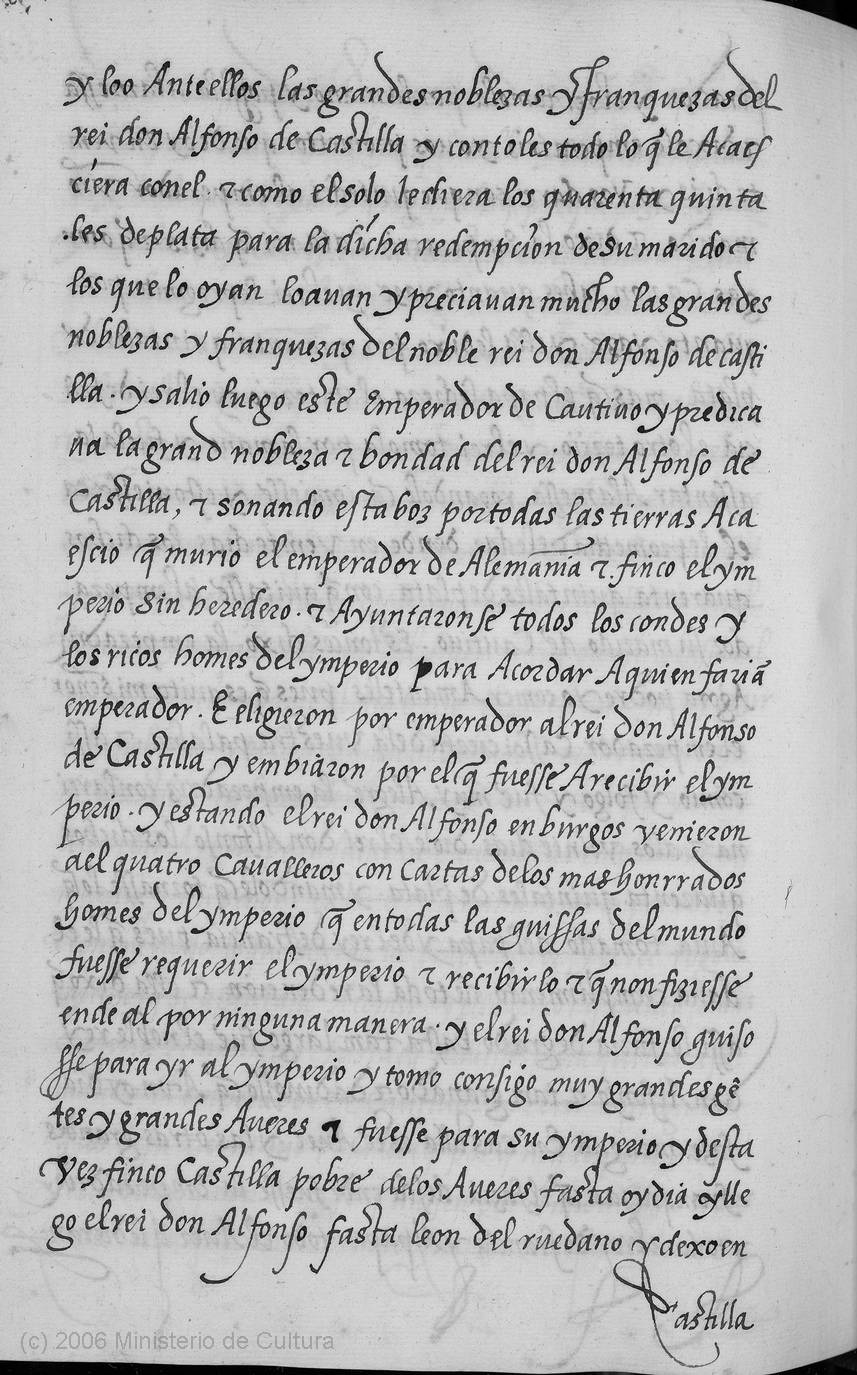 y loo Ante ellos las grandes noblezas y franquezas del
rei don Alfonso de Castilla y contoles todo lo q̃ le Acaes
ciera conel ⁊ como el solo le diera los quarenta quinta
.les de plata para la dicha redempcion de su marido ⁊
los que lo oyan loauan y preciauan mucho las grandes
noblezas y franquezas del noble rei don Alfonso de casti
lla . y salio luego este Emperador de Cautiuo y predica
ua la grand nobleza ⁊ bondad del rei don Alfonso de
Castilla, ⁊ sonando esta boz por todas las tierras Aca
escio q̃ murio el emperador de Alemania ⁊ . finco el ym
perio sin heredero . ⁊ Ayuntaronse todos los condes y
los ricos homes del ymperio para Acordar A quien fariã
emperador . E eligieron por emperador al rei don Alfonso
de Castilla y embiaron por el q̃ fuesse A recibir el ym
perio . y estando el rei don Alfonso en burgos venieron
a el quatro Caualleros con Cartas de los mas honrrados
homes del ymperio q̃ en todas las guissas del mundo
fuesse requerir el ymperio ⁊ recibirlo ⁊ q̃ non fiziesse
ende al por ninguna manera . y el rei don Alfonso guiso
sse para yr al ymperio y tomo consigo muy grandes gẽ
tes y grandes Aueres ⁊ fuesse para su ymperio y desta
vez finco Castilla pobre de los Aueres fasta oy dia y lle
go el rei don Alfonso fasta leon del ruedano y dexo en
Castilla
(c) 2006 Ministerio de Cultura